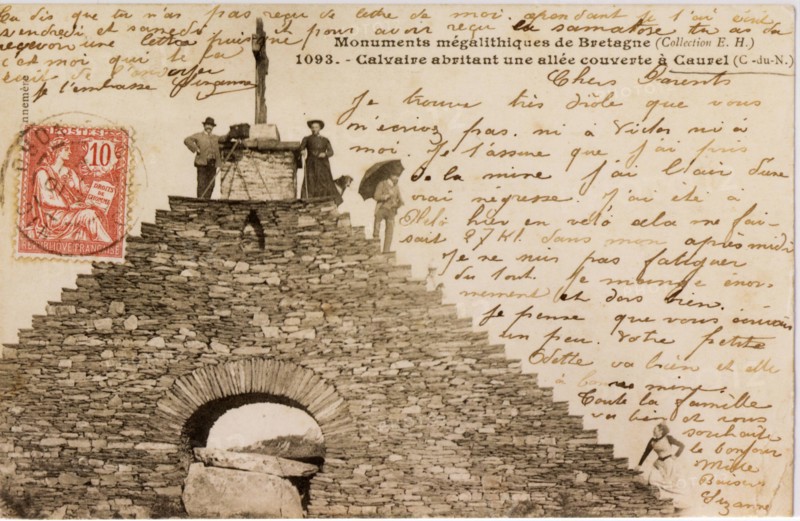 Tu dis que tu n'as pas reçu de lettre de moi cependant je t'ai écrit
vendredi et samedi et pour avoir reçu la samatose tu as du
recevoir une lettre puisque
c'est moi qui te la
Je t'embrasse Suzanne
Monuments mégalithiques de Bretagne (Collection E. H.)
1093. - Calvaire abritant une allée couverte à Caurel (C-du-N.)
Chers Parents
Je trouve très drôle que vous
n'écrivez pas ni à Victor ni à
moi. Je t'assure que j'ai pris
de la mine j'ai l'air d'une
vrai négresse. J'ai été à
hier en vélo cela me fai-
sait 27 Kl. dans mon après midi
Je ne suis pas fatiguée
du tout. Je mange énor-
mement et dors bien.
Je pense que vous écrivez
un peu. Votre petite
Odette va bien et elle
à bonne mine.
Toute la famille
va bien et vous
souhaite
le bonjour
Mille
Baisers
Suzanne
POSTES
10
DROITS
DE L'HOMME
REPUBLIQUE FRANÇAISE